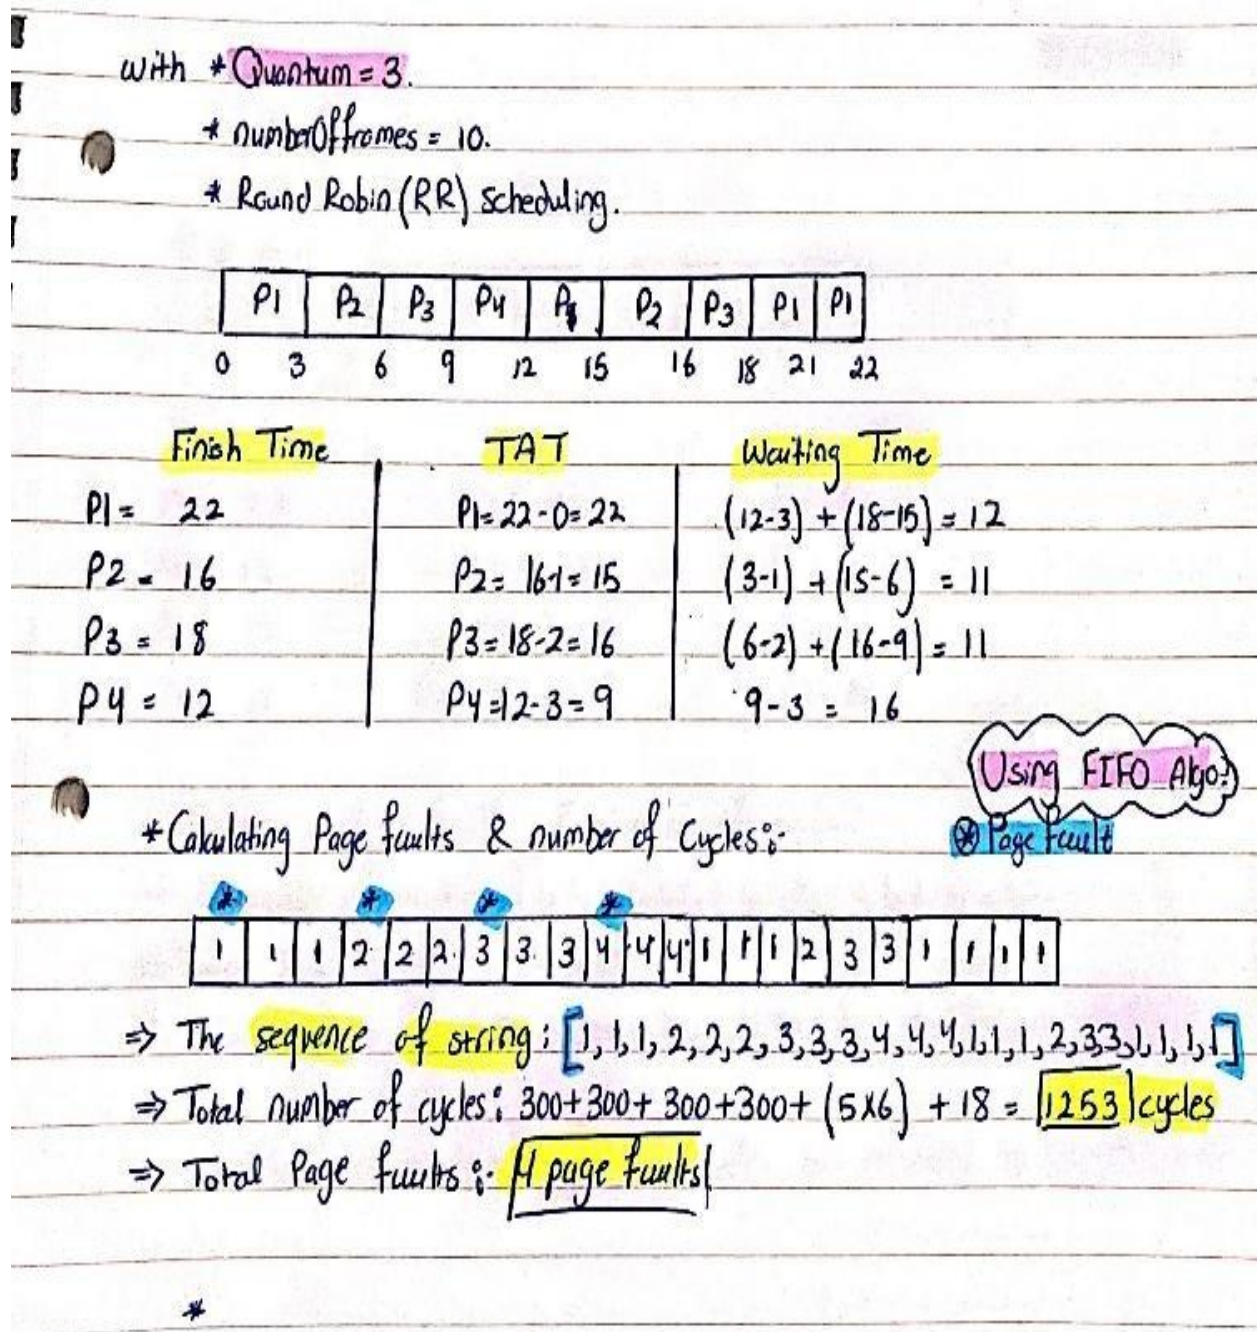 with * Quantum = 3.
* numberOfframes = 10.
* Round Robin (RR) scheduling.
P1 P2 P3 P4 P1 P2 P3 P1 P1
0 3 6 9 12 15 16 18 21 22
Finish Time TAT Waiting Time
P1 = 22 P1 = 22-0 = 22 (12-3) + (18-15) = 12
P2 = 16 P2 = 16-1 = 15 (3-1) + (15-6) = 11
P3 = 18 P3 = 18-2 = 16 (6-2) + (16-9) = 11
P4 = 12 P4 = 12-3 = 9 9-3 = 16
Using FIFO Algo:
* Calculating Page faults & number of Cycles:- ⊛ Page fault
* * * *
1 1 1 2 2 2 3 3 3 4 4 4 1 1 1 2 3 3 1 1 1 1
⇒ The sequence of string: [1, 1, 1, 2, 2, 2, 3, 3, 3, 4, 4, 4, 1, 1, 1, 2, 3 3, 1, 1, 1, 1]
⇒ Total number of cycles: 300 + 300 + 300 + 300 + (5x6) + 18 = 1253 cycles
⇒ Total Page faults :- 4 page faults
*